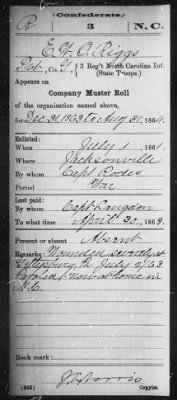 Confederate.
R 3 N.C.
E. W. C. Riggs
Pvt, Co. G, 3 Reg't North Carolina Inf.
(State Troops.)
Appears on
Company Muster Roll
of the organization named above,
for Dec 31, 1863 to Aug 31, 1864.
Enlisted:
When July 1, 1861.
Where Jacksonville
By whom Capt Rodes
Period War
Last paid:
By whom Capt Langdon
To what time April 30, 1863.
Present or absent Absent
Remarks: Wounded severely at
Gettysburg, Pa July 2/63
Paroled & now at home in
N.C.
Book mark:
(642) Copyist.